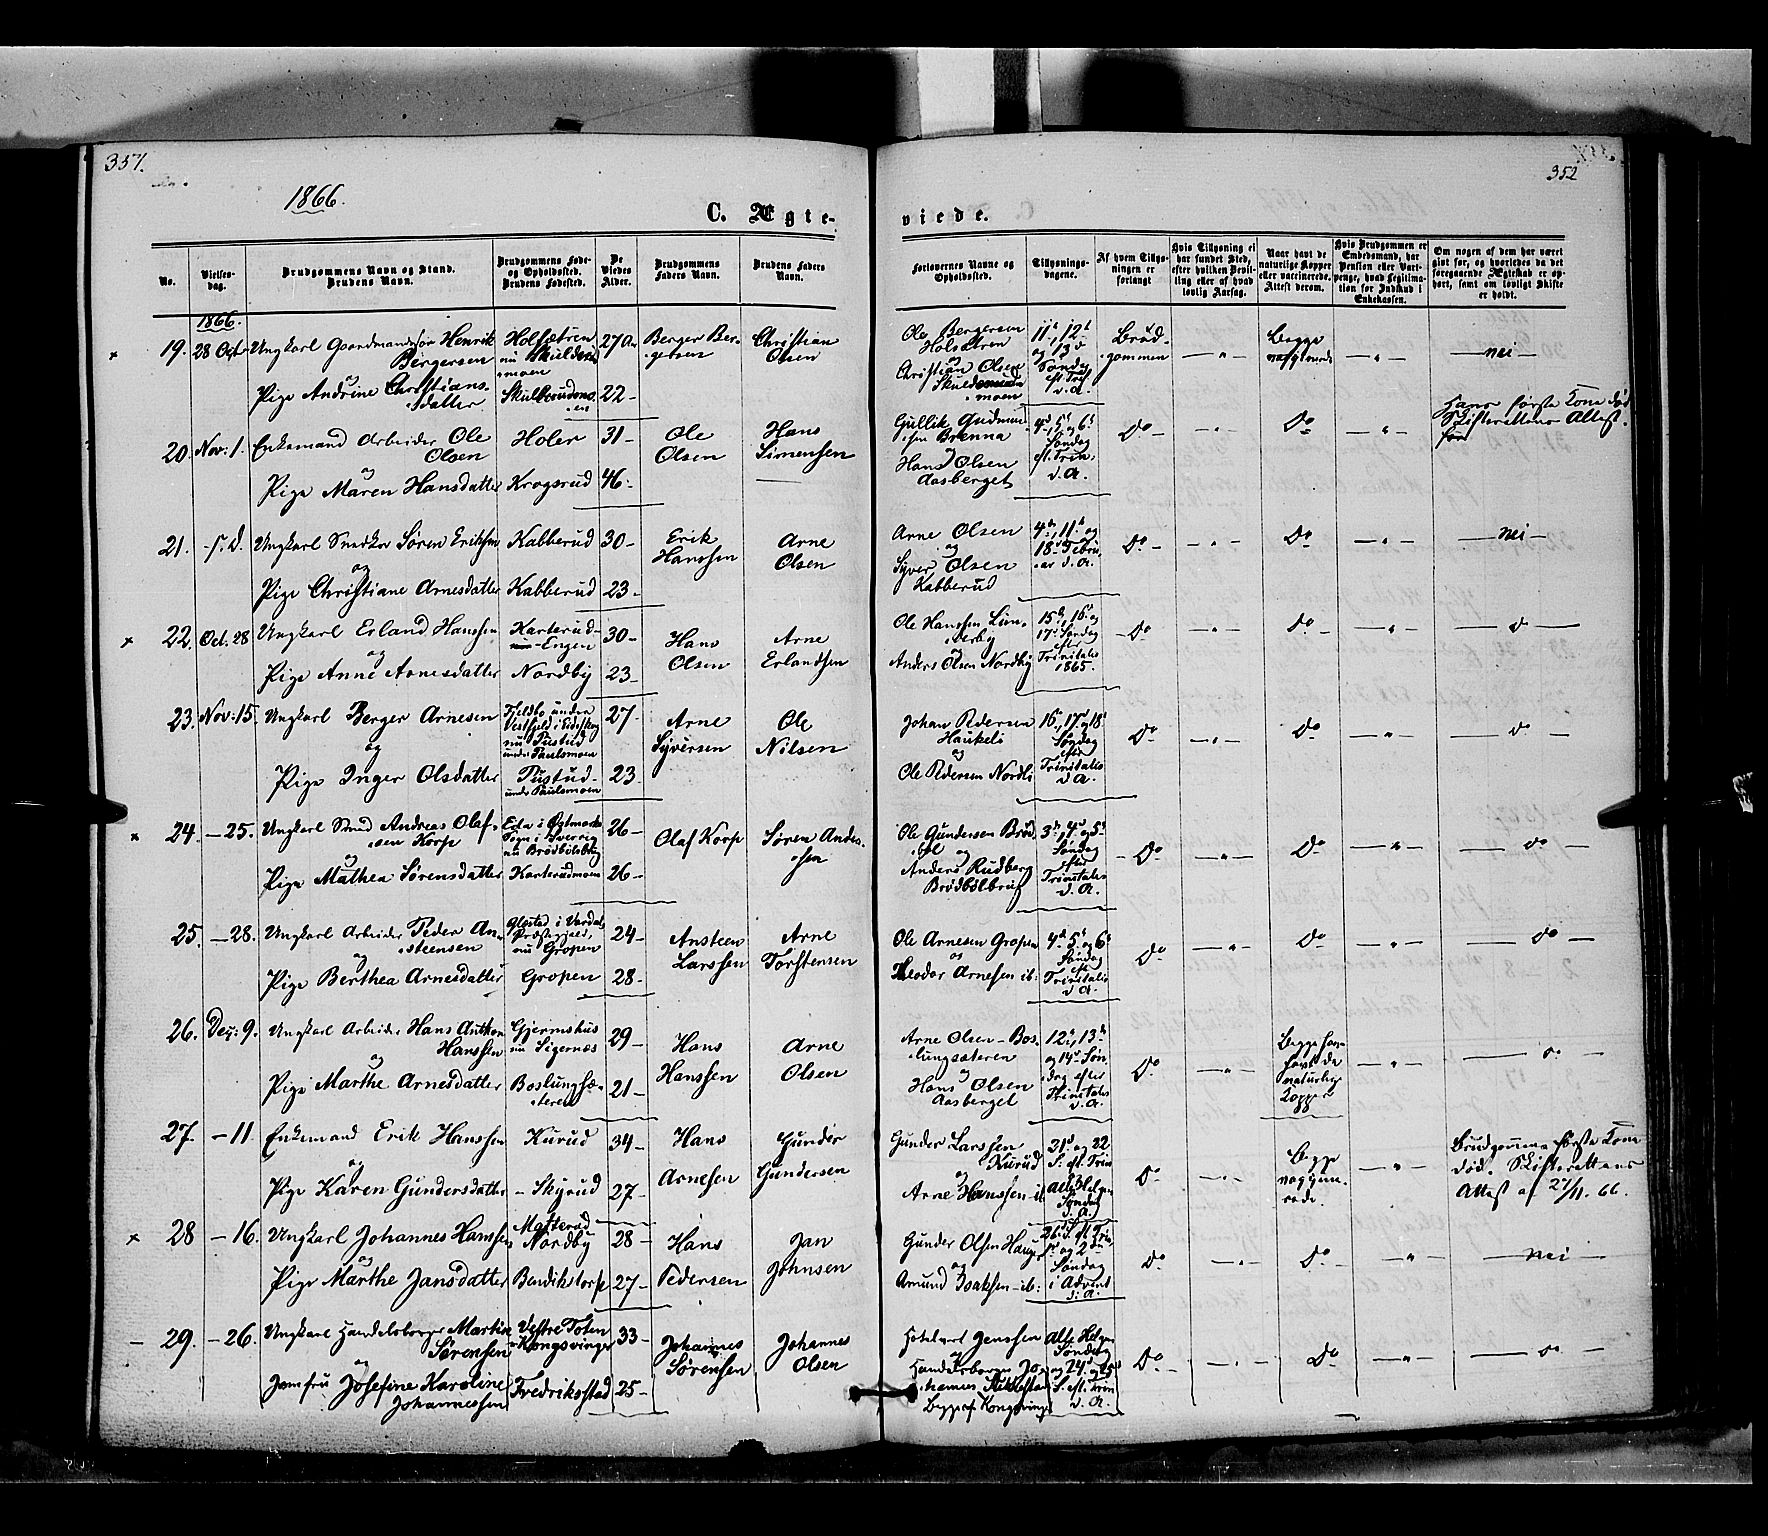 351.
1866.
C. Ægte-
viede.
352
No.
Vielses-
dag.
Brudgommens Navn og Stand.
Brudens Navn.
Brudgommens Føde-
og Opholdssted.
Brudens Fødested.
De
Viedes
Alder.
Brudgommens
Faders Navn.
Brudens Faders
Navn.
Forlovernes Navne og
Opholdssted.
Tillysnings-
dagene.
Af hvem Tillys-
ningen er
forlangt
Hvis Tillysning ei
har fundet Sted,
efter hvilken Bevil-
ling eller af hvad
lovlig Aarsag.
Naar havt de
naturlige Kopper
eller vaccinerede.
Attest derom.
Hvis Brudgommen er
Embedsmand, har
Pension eller Vart-
penge, hvad Legitima-
tion for Indskud i
Enkekassen.
Om nogen af dem har været
gift før, og hvorledes da det
foregaaende Ægteskab er op-
hørt, samt om lovligt Skifte
er holdt.
1866.
19. 28 Oct. Ungkarl Gaardmandssøn Henrik
Bergersen
og
Pige Andrine Christians-
datter
Holsætren
nu Skulderud
moen
Skulberudmo-
en
27 Aar
22 -
Berger Ber-
gersen
Christian
Olsen
Ole Bergersen
Holsætren
og
Christian Olsen
moen
11te, 12te
og 13de
Søndag
eft. Trin.
d. A.
Brud-
gommen
Begge
vaccinerede
nei
20. Nov: 1. Enkemand Arbeider Ole
Olsen
og
Pige Maren Hansdatter
Holer
Krogsrud
31 -
46 -
Ole
Olsen
Hans
Simensen
Gullik Gudmund-
sen Brenna
Hans Olsen
Aasberget
4de, 5te og 6te
Søndag
eft. Trin.
d. A.
Do -
Do
Hans første Kone død
Skifterettens Attest.
for
21. - s. d. Ungkarl Snedker Søren Eriksen
og
Pige Christiane Arnesdatter
Kabberud
Kabberud
30 -
23 -
Erik
Hanssen
Arne
Olsen
Arne Olsen
og
Syver Olsen
Kabberud
4de, 11te og
18de Febru-
ar d. A.
Do -
Do
nei
22. Oct. 28 Ungkarl Erland Hanssen
og
Pige Anne Arnesdatter
Karterud-
Engen
Nordby
30 -
23 -
Hans
Olsen
Arne
Erlandsen
Ole Hanssen Lun-
derby
Anders Olsen Nordby
15de, 16de og
17de Søndag
efter
Trinitatis
1865.
Do
Do
Do
23. Nov: 15. Ungkarl Berger Arnesen
og
Pige Inger Olsdatter
Fjeldbo under
Vestfjeld i Eidskog
nu Pustud
under Paulsmoen
Pustud
under Paulsmoen
27
23
Arne
Syversen
Ole
Nilsen
Johan Pedersen
Haukeli
og
Ole Pedersen Nordli
16de, 17de og 18de
Søndag
efter
Trinitatis
d. A.
Do
Do
Do
24. - 25. Ungkarl Smed Andreas Olaf-
sen Korp
og
Pige Mathea Sørensdatter
nu Brødbølsbrug
Karterudmoen
26 -
26 -
Olaf Korp
Søren Anders-
sen
Ole Gundersen Brød-
bøl og
Anders Rudberg
Brødbølbrug
3de, 4de og 5te
Søndag
efter
Trinitatis
d. A.
Do
Do
Do
25. - 28. Ungkarl Arbeider Peder An-
steensen
og
Pige Berthea Arnesdatter
Præstegjeld,
nu Gropen
Gropen
24 -
28 -
Ansteen
Larssen
Arne
Torstensen
Ole Arnesen Gropen
og
Theodor Arnesen ib:
4de, 5te og 6te
Søndag
eft.
Trinitatis
d. A.
Do
Do
Do
26. Dec: 9. Ungkarl Arbeider Hans Anthon
Hanssen
og
Pige Marthe Arnesdatter
Gjermshus
nu Sigernæs
Boslungsæ-
teren
29 -
21 -
Hans
Hanssen
Arne
Olsen
Arne Olsen Bos-
lungsæteren
og
Hans Olsen
Aasberget
12te, 13de
og 14de Søn-
dag efter
Trinitatis
d. A.
Do
Begge har
havt de
naturlige
Kopper
Do
27. - 11. Enkemand Erik Hanssen
og
Pige Karen Gundersdatter
Kurud
Skyrud
34 -
27 -
Hans
Arnesen
Gunder
Gundersen
Gunder Larssen
Kurud
og
Arne Hanssen ib.
21de og 22
S. eft. Trin
Alle Helgen
Søndag
d. A.
Do
Begge
vaccine-
rede.
Brudgommens første Kone
død. Skifterettens
Attest af 27/11. 66.
28 - 16. Ungkarl Johannes Hanssen
og
Pige Marthe Jansdatter
Matterud
Nordby
Bendikstorp
28 -
27 -
Hans
Pedersen
Jan
Johnsen
Gunder Olsen Hauger
og
Amund Isaksen ib:
26de S. eft. Trin,
1ste og 2den
Søndag
i Advent
d: A.
Do
Do
nei
29. - 26. Ungkarl Handelsborger Martin
Sørensen
og
Jomfru Josefine Karoline
Johannessen
Vestre Toten
Kongsvinger
Fredriksstad
33 -
25 -
Johannes
Sørensen
Johannes
Olsen
Jenssen
og
Handelsborger Jo-
hannes
Begge af Kongsvinger
Alle Helgen
Søndag
og 24de og 25de
S. eft. Trin
d. A.
Do
Do
Do